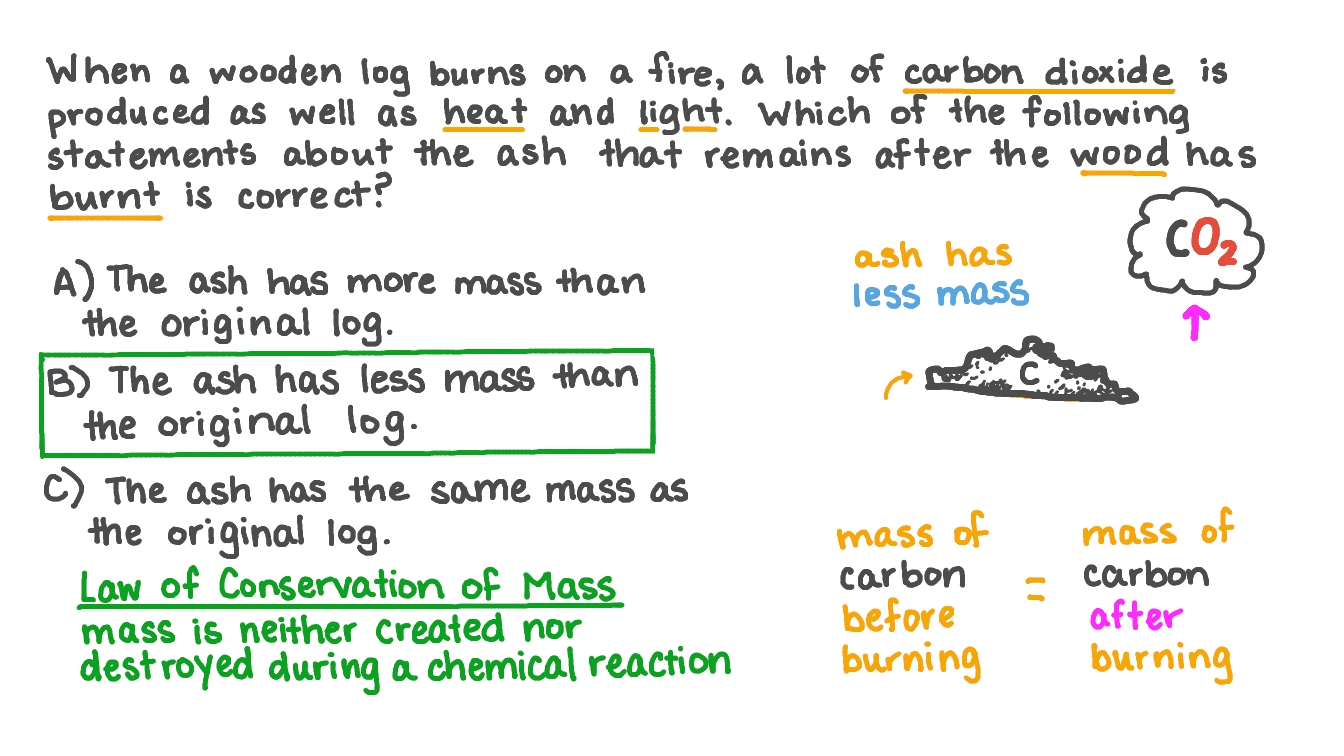 When a wooden log burns on a fire, a lot of carbon dioxide is
produced as well as heat and light. Which of the following
statements about the ash that remains after the wood has
burnt is correct?
CO₂
ash has
less mass
A) The ash has more mass than
the original log.
C
B) The ash has less mass than
the original log.
C) The ash has the same mass as
the original log.
Law of Conservation of Mass
mass is neither created nor
destroyed during a chemical reaction
mass of
carbon
before
burning
=
mass of
carbon
after
burning